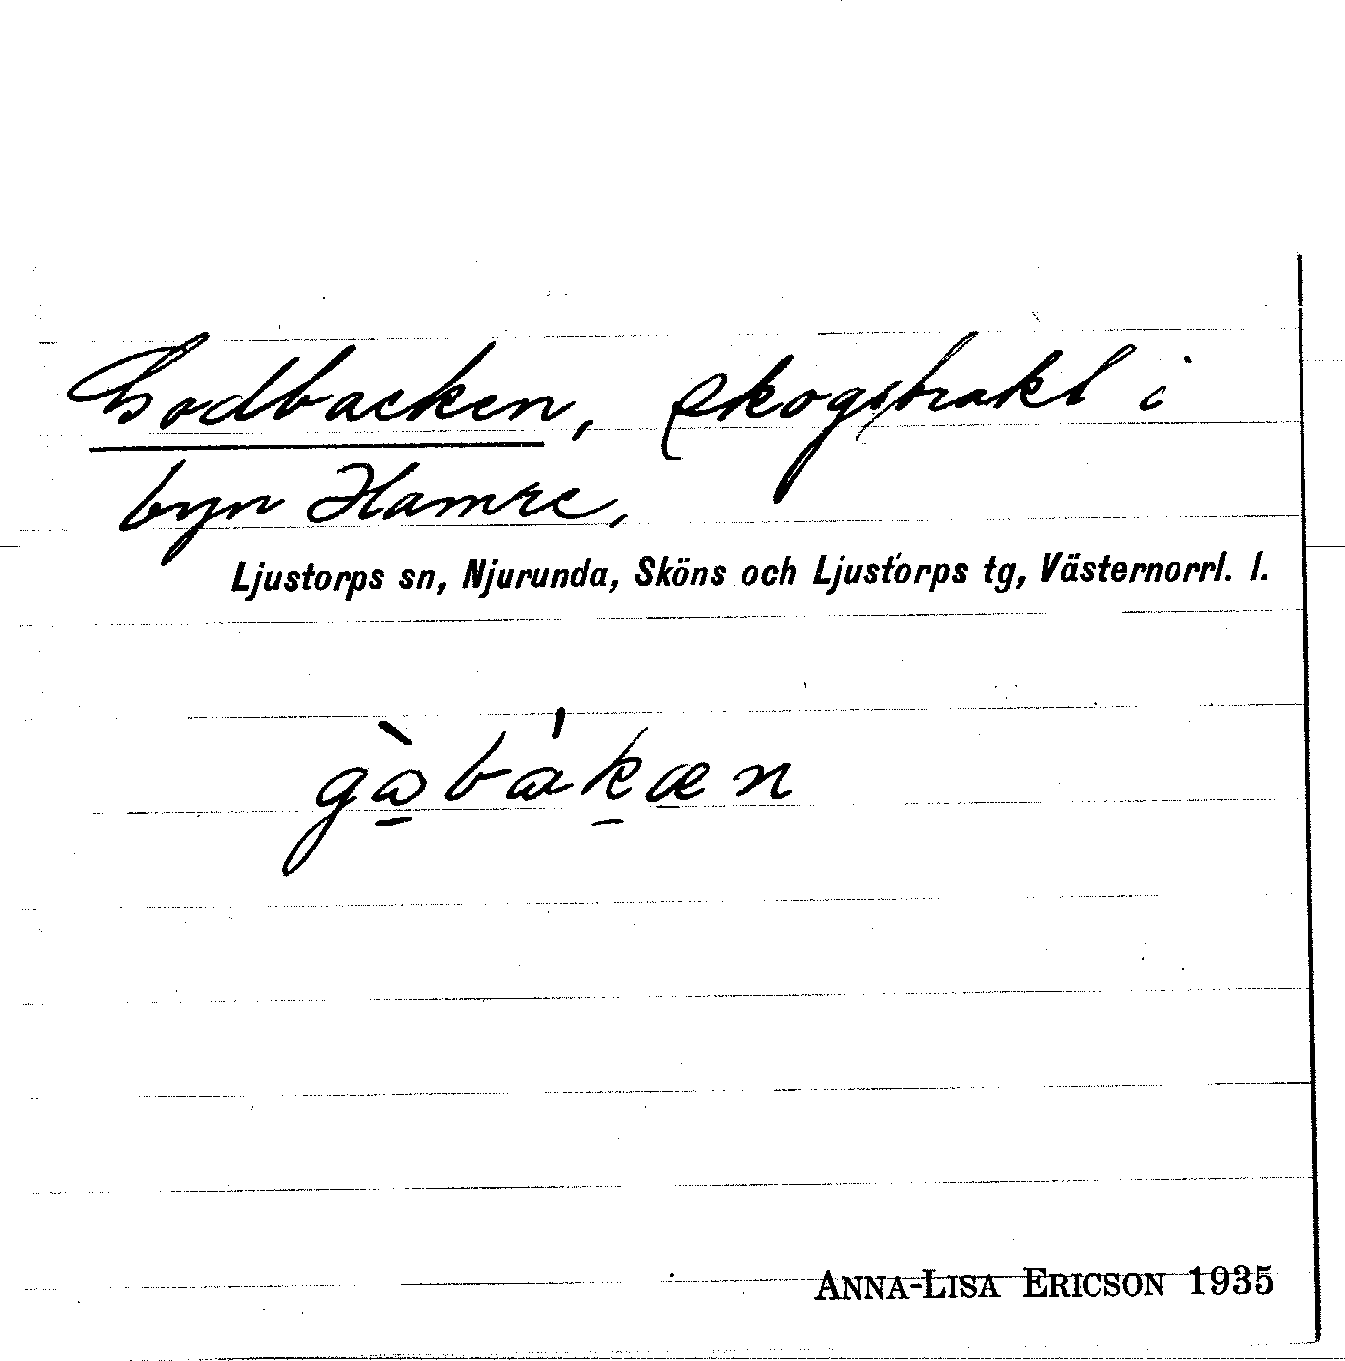 Godbacken, skogstrakt i
byn Hamre,
Ljustorps sn, Njurunda, Sköns och Ljustorps tg, Västernorrl. l.
gàbákæn
ANNA-LISA ERICSON 1935